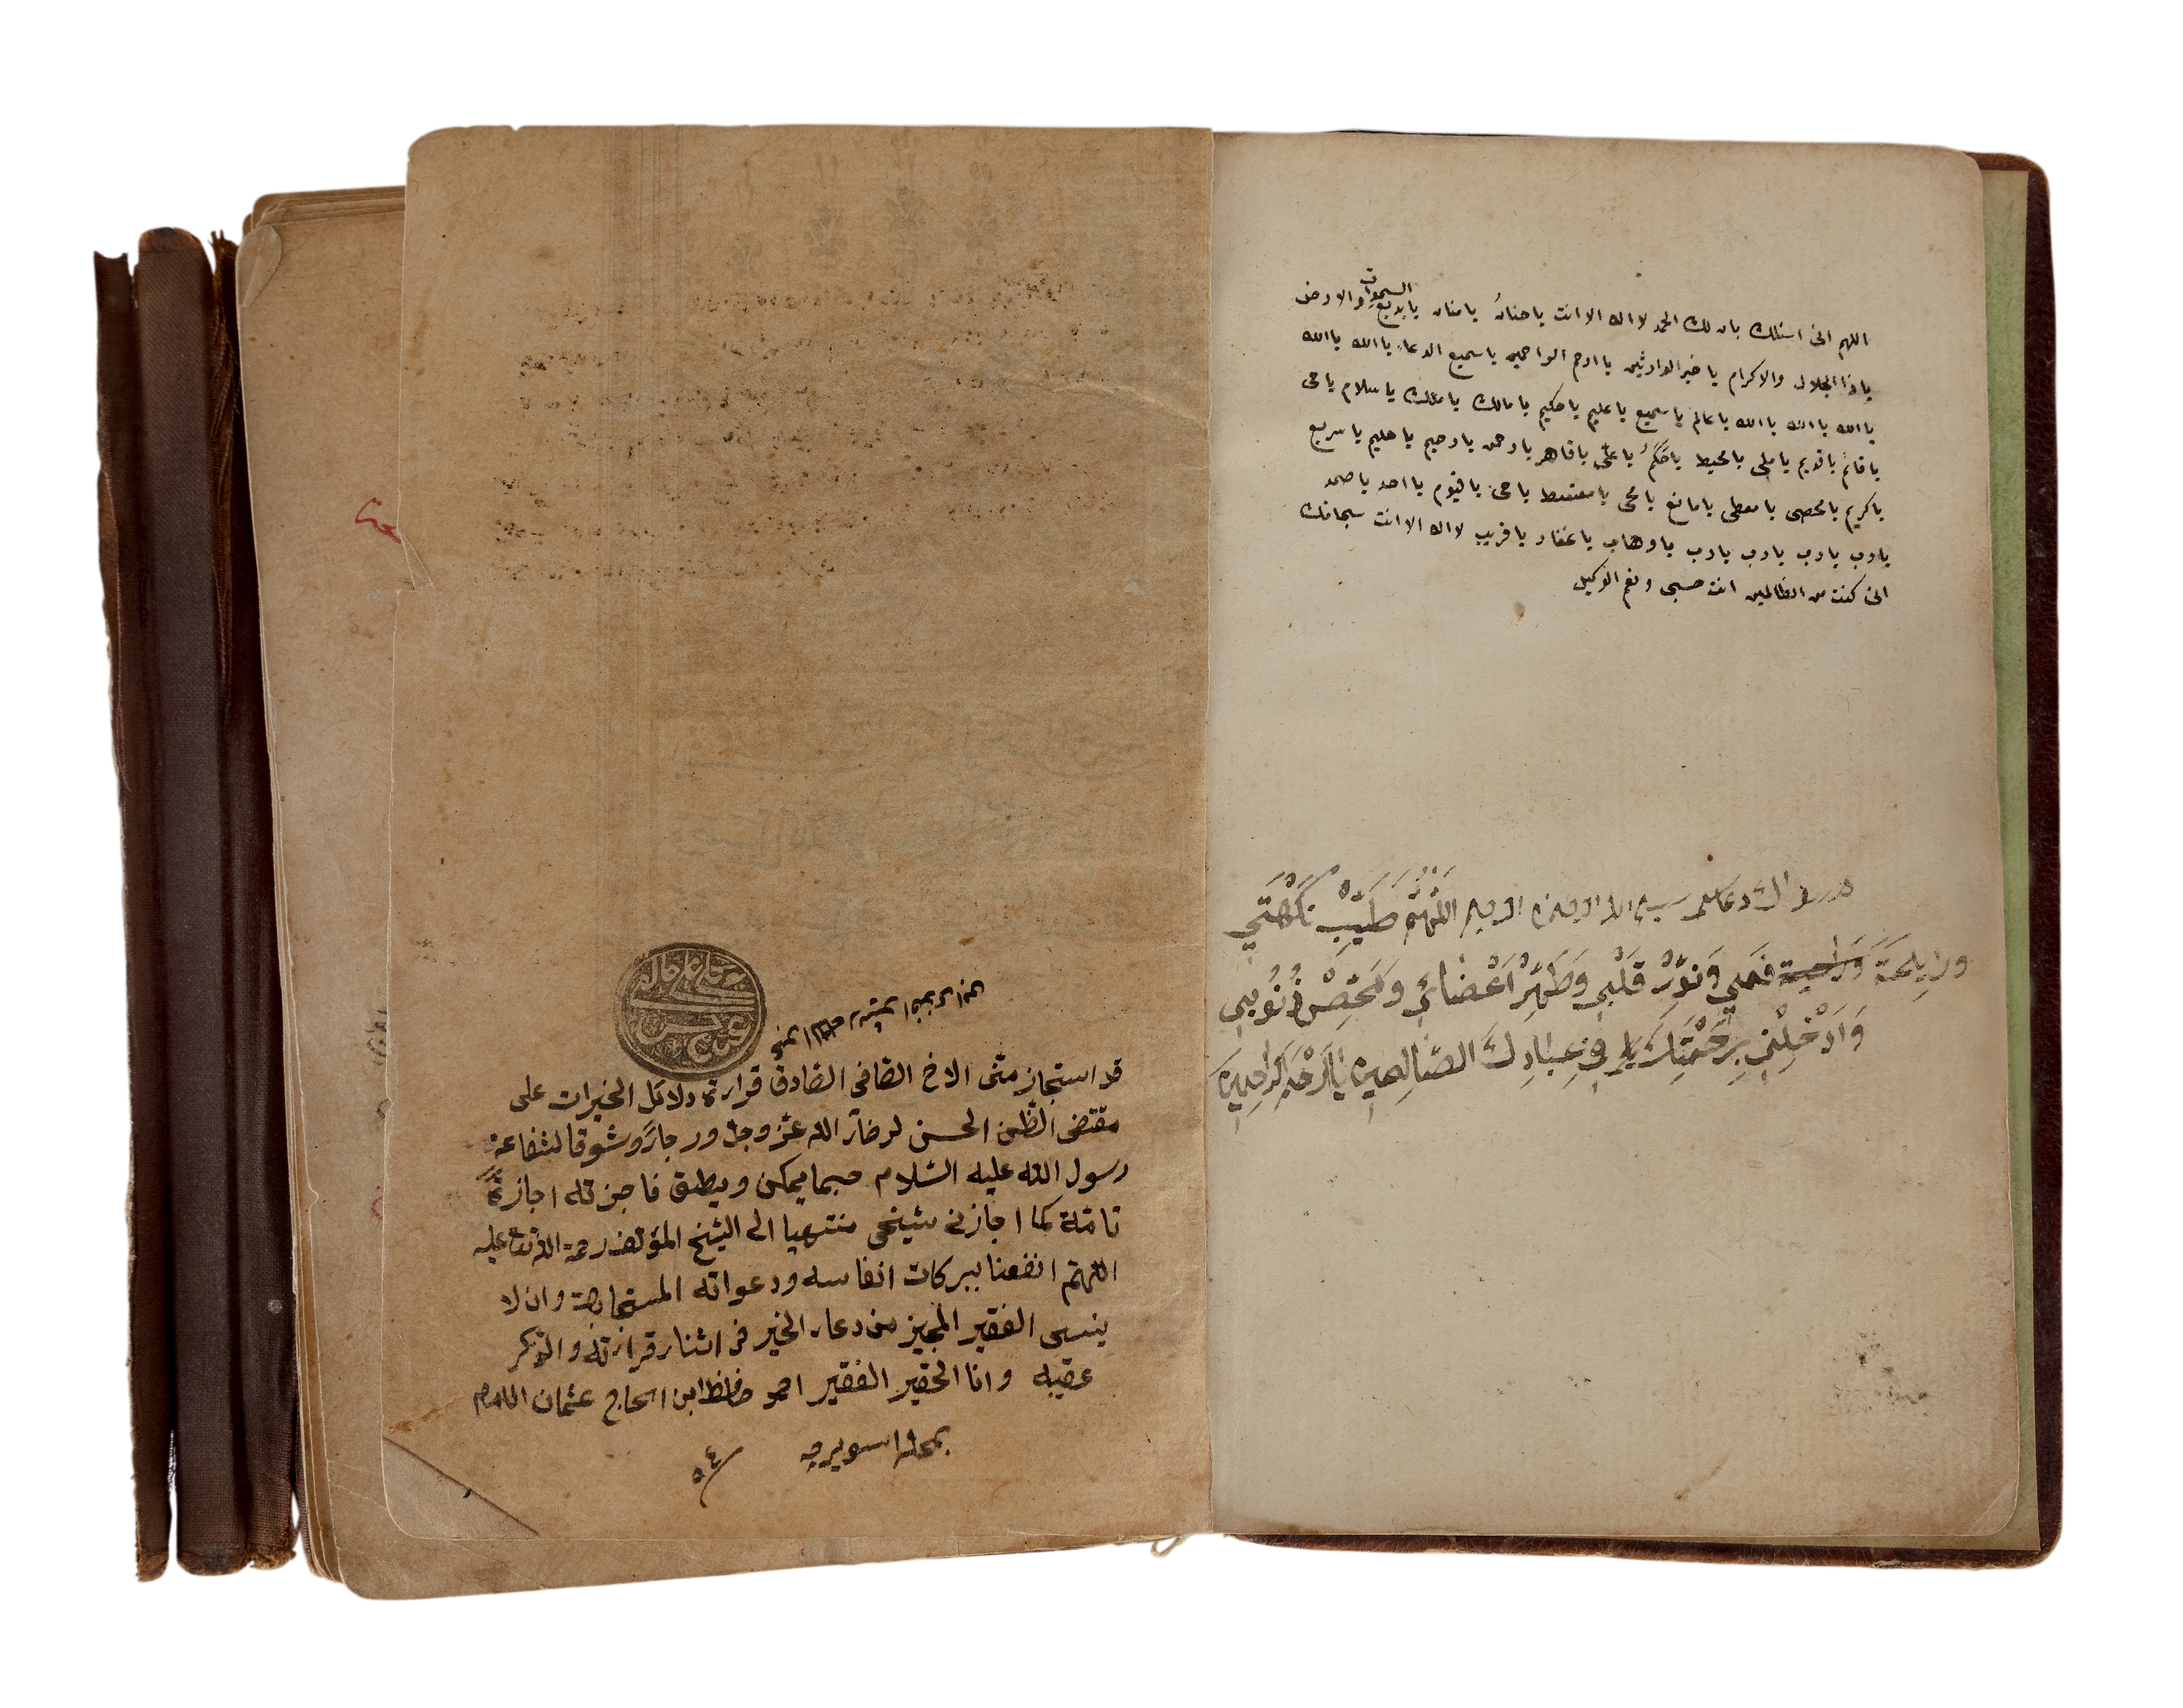 اللهم انى اسئلك بان لك الحمد لا اله الا انت يا حنان يا منان يا بديع السموات والارض
يا ذا الجلال والاكرام يا خير الوارثين يا ارحم الراحمين يا سميع الدعاء يا الله يا الله
يا الله يا الله يا الله يا عالم يا سميع يا عليم يا حكيم يا مالك يا ملك يا سلام يا حى
يا قائم يا قديم يا ملى يا محيط يا حكم يا على يا قاهر يا رحمن يا رحيم يا حليم يا سريع
يا كريم يا محصى يا معطى يا مانع يا محى يا مقسط يا حى يا قيوم يا احد يا صمد
يا رب يا رب يا رب يا رب يا وهاب يا غفار يا قريب لا اله الا انت سبحانك
انى كنت من الظالمين انت حسبى ونعم الوكيل
اللَّهُمَّ طَيِّبْ نَكْهَتِي
فَمِي وَنَوِّرْ قَلْبِي وَطَهِّرْ اَعْضَائِي وَمَحِّصْ ذُنُوبِي
وَاَدْخِلْنِي بِرَحْمَتِكَ فِي عِبَادِكَ الصَّالِحِينَ يَا اَرْحَمَ الرَّاحِمِينَ
قد استجاز منّى الاخ الصّافى الصّادق قراءة دلائل الخيرات على
مقتضى الظّن الحسن لرضاء الله عزّ وجلّ ورجاءً وشوقا لشفاعة
رسول الله عليه السّلام حسبما يمكن ويطيق فاجزته اجازةً
تامّة كما اجازنى شيخى منتهيا الى الشيخ المؤلف رحمة الله تعالى عليه
اللّهمّ انفعنا ببركات انفاسه ودعواته المستجابة وان لا
ينسى الفقير المجيز من دعاء الخير فى اثناء قراءته والذّكر
عقيبه وانا الحقير الفقير احمد حافظ ابن الحاج عثمان الامام
بمحله